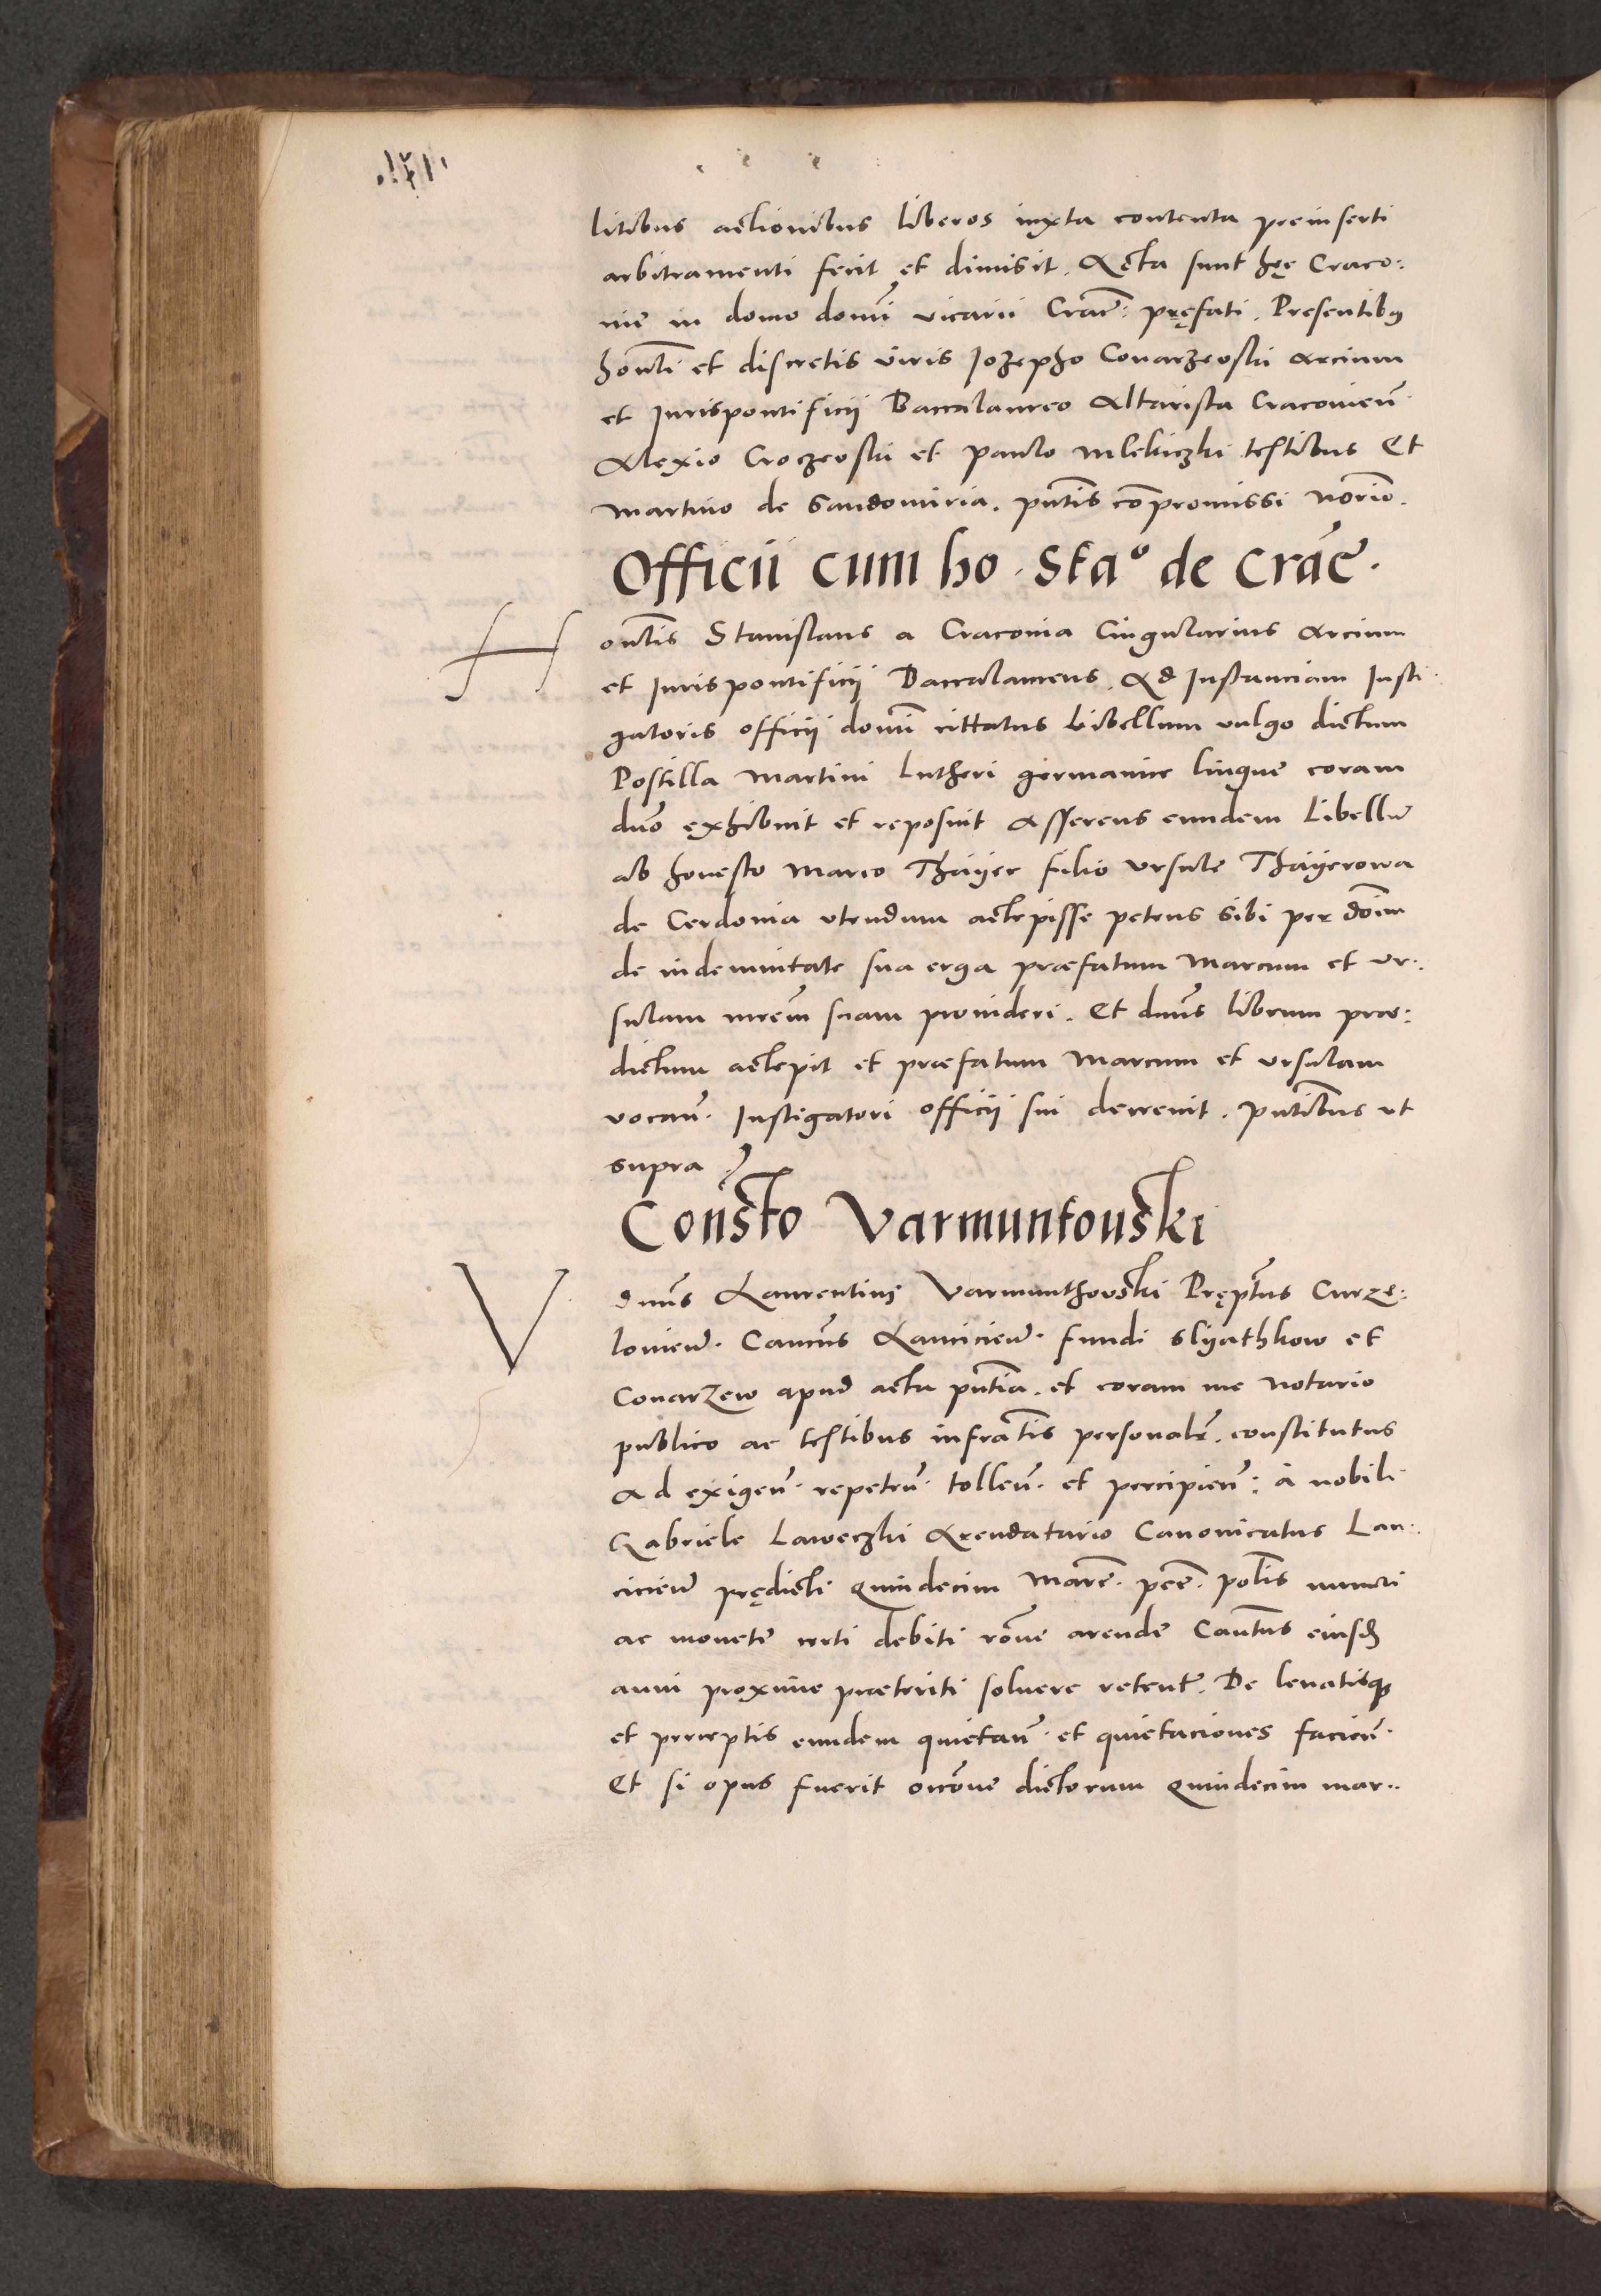 litibus actionibus liberos iuxta contenta preinserti
arbitramenti fecit et dimisit. Acta sunt hęc Craco:
nie in domo domi̅ vicarii Crac̅: pręfati. Presentibus
hon̅li et discretis viris Iozepho Couarzeoski Arcium
et Iurispontificii Baccalaureo Altarista Cracovien̅.
Alexio Croczeoski et Paulo Mlekiczki testibus Et
Martino de Sandomiria. pn̅tis co̅promissi no̅rio.
Officii cum ho. Staº de Crac̅.
H on̅lis Stanislaus a Cracovia Cingularius Arcium
et Iurispontificii Baccalaureus. Ad Instanciam Insti
gatoris officii domi̅ cittatus Libellum vulgo dictum
Postilla Martini Lutheri germanice lingue coram
dn̅o exhibuit et reposuit Asserens eundem Libellu̅
ab honesto Marco Thayer filio Vrsule Thayerowa
de Cerdonia vtendum accepisse petens sibi per do̅im
de indemnitate sua erga præfatum Marcum et Vr:
sulam mr̅em suam provideri. Et dn̅us librum præ:
dictum accepit et præfatum Marcum et Vrsulam
vocan̅. Instigatori officii sui decrevit. Pn̅tibus vt
supra
Con̅sto Varmuntouski
V dn̅us Laurentius Varmunthovski Pręp̅tus Curzę:
lovien̅. Can̅cus Lancicien̅. fundi Slyathkow et
Couarzew apud acta pn̅tia. et coram me Notario
publico ac testibus infra̅tis personalr̅. constitutus
Ad exigen̅. repeten̅. tollen̅. et percipien̅: à nobili
Gabriele Laweczki Arendatario Canonicatus Lan:
cicien̅ prędicti Quindecim Marc̅. pec̅. pol̅is numeri
ac monete certi debiti ro̅ne arende Can̅tus eiusd̅
anni proxime præteriti solvere retent̅. De levatisque
et perceptis eundem quietan̅. et quietaciones facien̅.
Et si opus fuerit occo̅ne dictorum Quindecim mar: